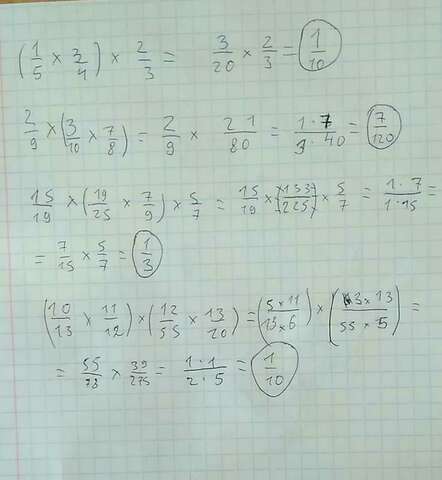 (1/5 × 3/4) × 2/3 = 3/20 × 2/3 = 1/10
2/9 × (3/10 × 7/8) = 2/9 × 21/80 = 1·7/3·40 = 7/120
15/19 × (19/25 × 7/9) × 5/7 = 15/19 × (133/225) × 5/7 = 1·7/1·15 =
= 7/15 × 5/7 = 1/3
(10/13 × 11/12) × (12/55 × 13/20) = (5×11/13×6) × (3×13/55×5) =
= 55/78 × 39/275 = 1·1/2·5 = 1/10